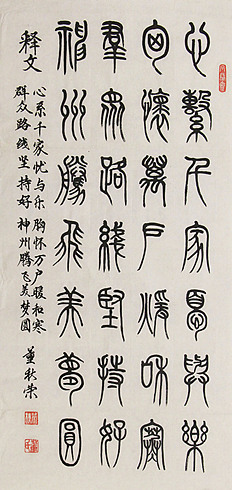 心繫千家憂與樂
胷懷萬戶煖和寒
羣眾路綫堅持好
神州騰飛美夢圓
释文
心系千家忧与乐 胸怀万户暖和寒
群众路线坚持好 神州腾飞美梦圆
董秋荣